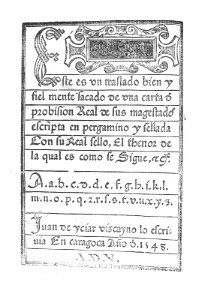 Este es vn traslado bien y
fiel mente sacado de vna carta o
probision Real de sus magestades
escripta en pergamino y sellada
Con su Real sello, El thenor de
la qual es como se Sigue, etc.
A.a.b.c.d.e.f.g.h.i.k.l.
m.n.o.p.q.r.s.t.v.u.x.y.z.
Juan de yciar viscayno lo escri-
uia En caragoca Año d.1548.